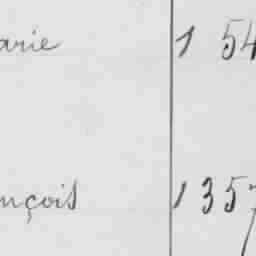 arie 1 54
nçois 1357